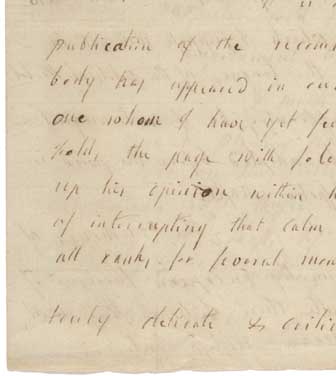 publication of the recom
body has appeared in our
one whom I have yet
holds the page with
up his opinion within
of interrupting that calm
all ranks for several mon
truly delicate & critic